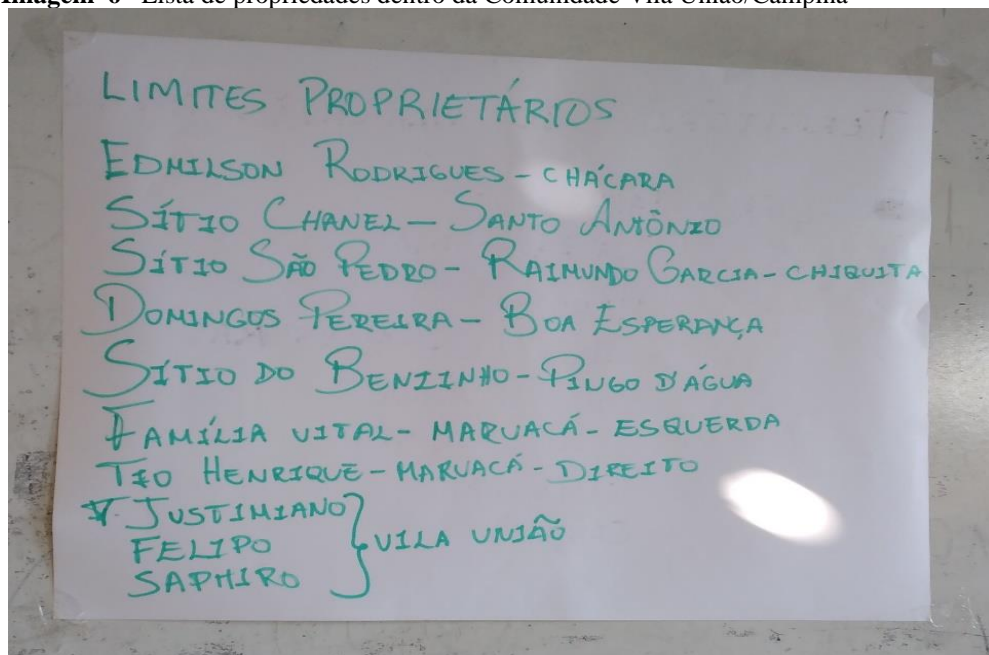 Imagem 6 Lista de propriedades dentro da Comunidade Vila União/Campina
LIMITES PROPRIETÁRIOS
EDMILSON RODRIGUES - CHÁCARA
SÍTIO CHANEL - SANTO ANTÔNIO
SÍTIO SÃO PEDRO - RAIMUNDO GARCIA - CHIQUITA
DOMINGOS PEREIRA - BOA ESPERANÇA
SÍTIO DO BENZINHO - PINGO D'ÁGUA
FAMÍLIA VITAL - MARUACÁ - ESQUERDA
TIO HENRIQUE - MARUACÁ - DIREITO
JUSTIMIANO
FELIPO
SAPHIRO
VILA UNIÃO